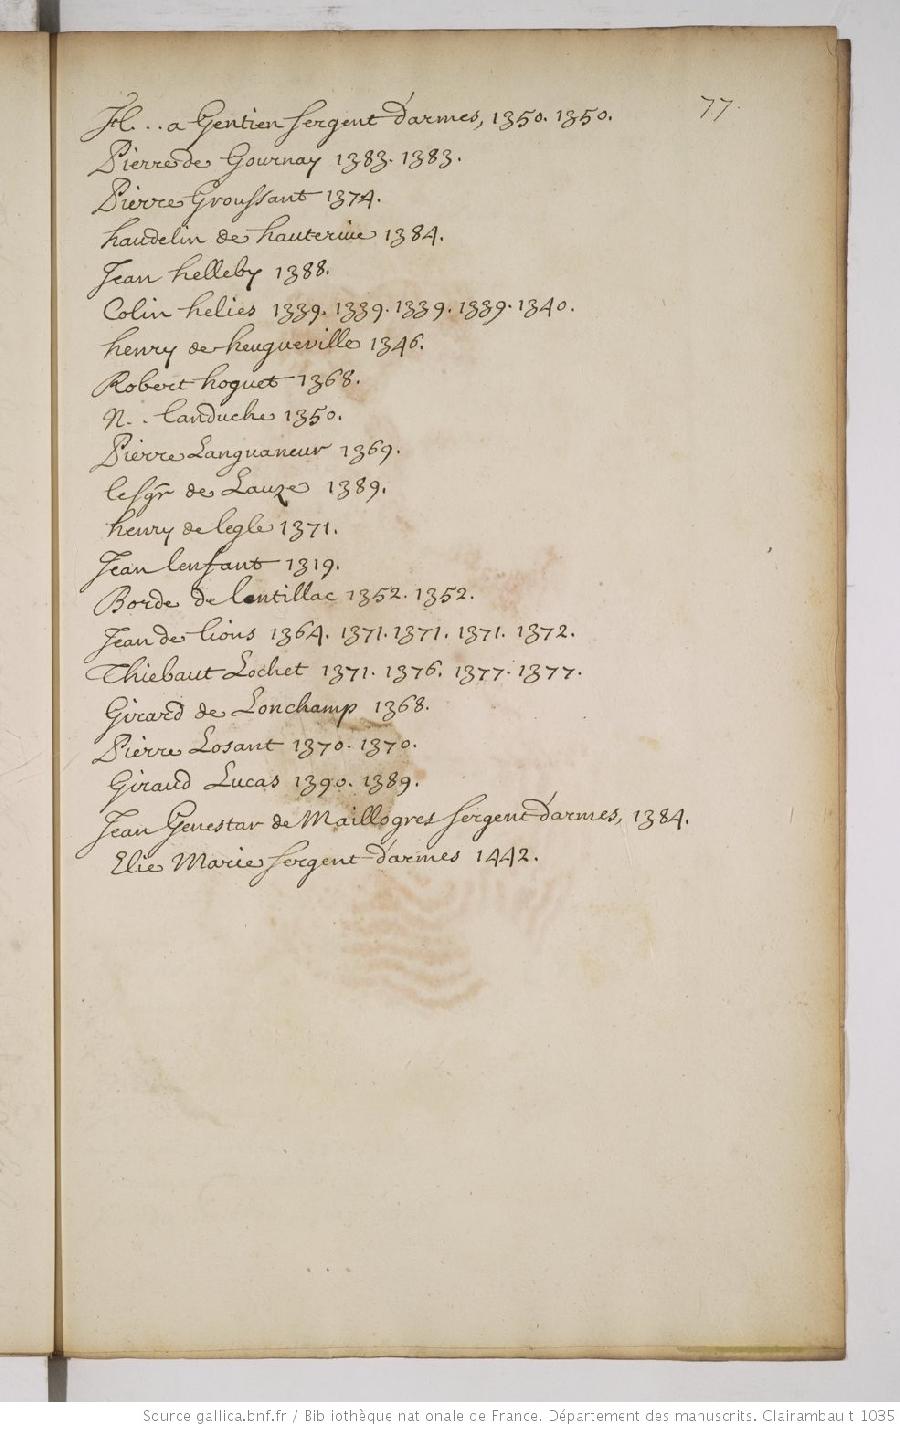 77.
H...a Gentien sergent d'armes, 1350. 1350.
Pierre de Gournay 1383. 1383.
Pierre Groussant 1374.
haudelin de hauterive 1384.
Jean helleby 1388.
Colin helies 1339. 1339. 1339. 1339. 1340.
henry de heugueville 1346.
Robert hoguet 1368.
N.. landuche 1350.
Pierre Languaneur 1369.
le sgr de Lauze 1389.
henry de legle 1371.
Jean lenfant 1319.
Borde de lentillac 1352. 1352.
Jean de lions 1364. 1371. 1371. 1371. 1372.
Thiebaut Lochet 1371. 1376. 1377. 1377.
Girard de Lonchamp 1368.
Pierre Losant 1370. 1370.
Giraud Lucas 1390. 1389.
Jean Genestar de Maillogres sergent d'armes, 1384.
Elie Marie sergent d'armes 1442.
Source gallica.bnf.fr / Bibliothèque nationale de France. Département des manuscrits. Clairambault 1035